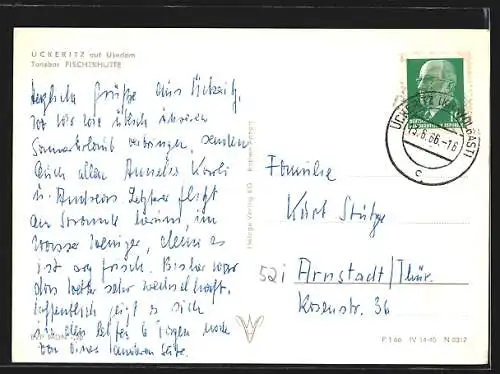 ÜCKERITZ auf Usedom
Tanzbar FISCHERHÜTTE
Herzliche Grüße aus Ückeritz,
wo wir wie üblich unseren
Sommerurlaub verbringen, senden
Euch allen Annelies Karli
u. Andreas. Letzterer fliegt
am Strande herum, im
Wasser weniger, denn es
ist arg frisch. Bisher war
das Wetter sehr wechselhaft.
Hoffentlich zeigt es sich
in den letzten 6 Tagen noch
von einer besseren Seite.
EVP MDN
ÜCKERITZ (KR WOLGAST)
6.66.-16
c
10
Familie
Karl Stütze
52i Arnstadt/Thür.
Rosenstr. 36
P 1/66 IV-14-45 N 0312